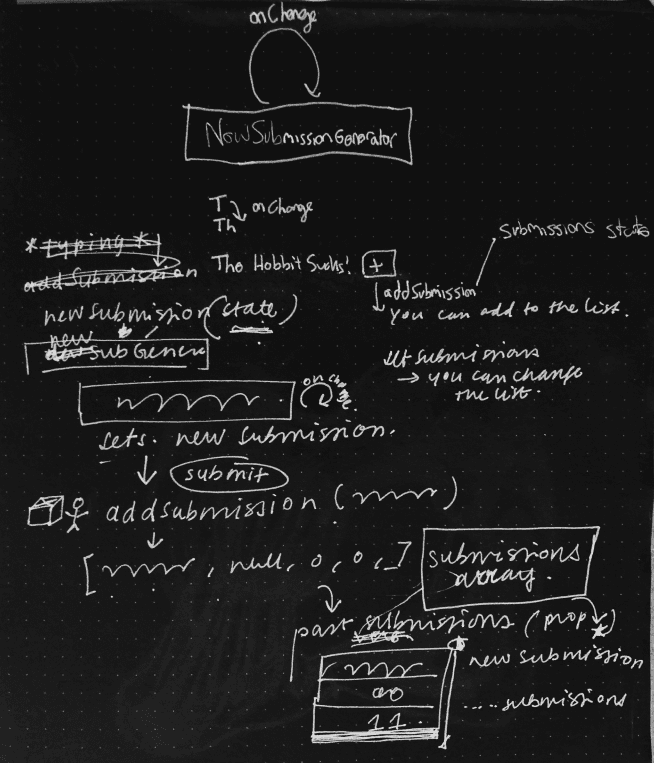 onChange
NewSubmissionGenerator
T
Th
onChange
*typing*
addSubmission
The Hobbit Sucks!
+
Submissions state
addSubmission
You can add to the list.
newSubmission (state)
new
SubGenera
set submissions
→ you can change
the list.
onChange
sets. new submission.
submit
addsubmission (
[ , null, 0, 0, _]
submissions
array.
past submissions (prop)
new submission
.... submissions
11